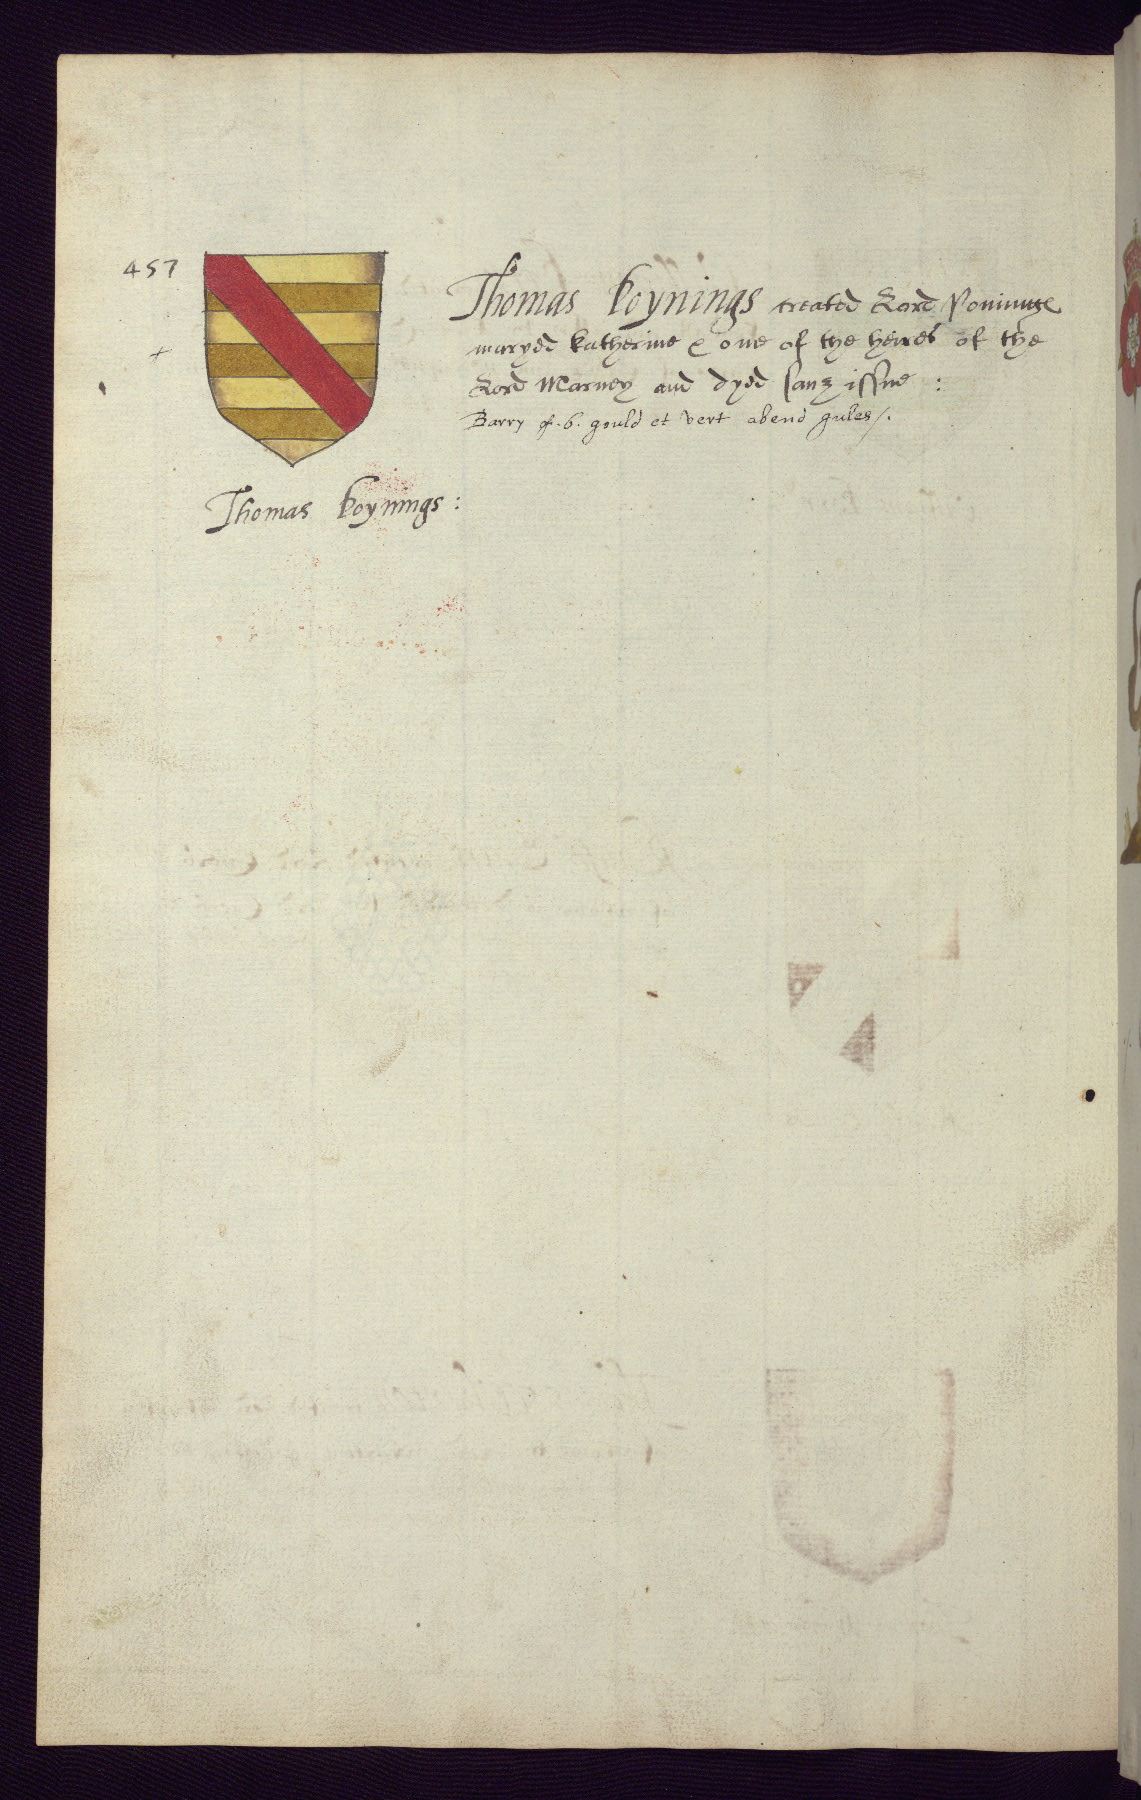 457
Thomas Poynings created Lord Poninges
maryed katherine & one of the heires of the
Lord Marney and dyed sanz issue :
Barry of .6. gould et vert a bend gules /.
+
Thomas Poynings :